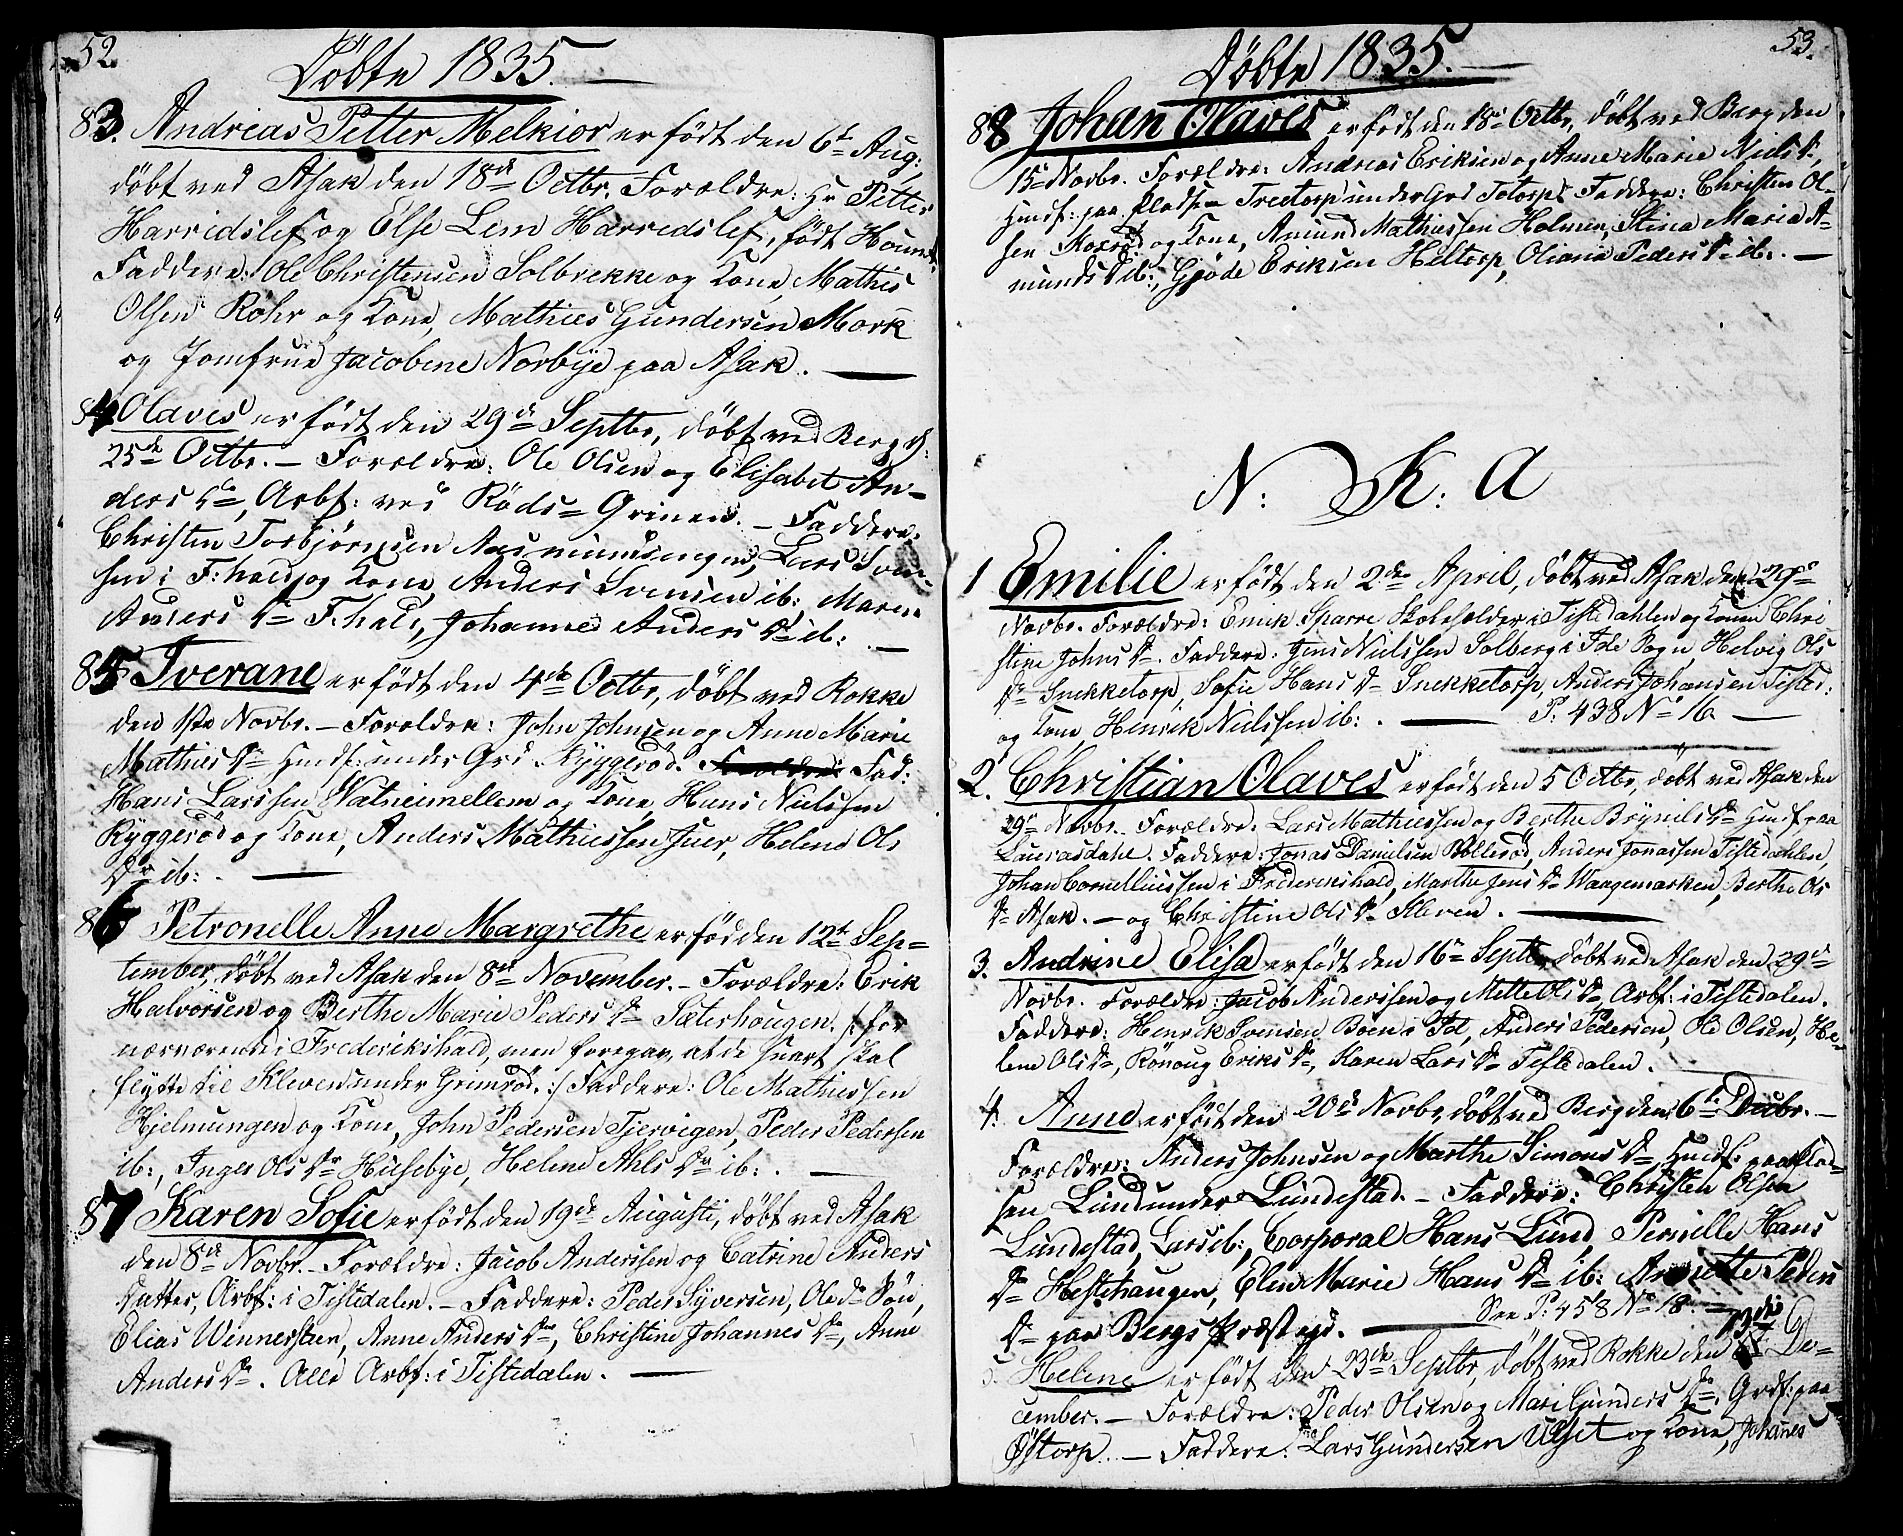 52.
Döbte 1835.
83. Andreas Petter Melkior er födt den 6t Aug:
döbt ved Asak den 18de Octbr. Forældre: Hr Petter
Harridslef og Else Lem Harredslef, födt
Faddere: Ole Christensen Solbrekke og Kone, Mathis
Olsen Röhr og Kone, Mathies Gundersen Mork
og Jomfrue Jacobine Norbye paa Asak.
84 Olaves er födt den 29de Septbr, döbt ved Berg d:
25de Octbr. – Forældre: Ole Olsen og Elisabet An-
ders D:, Arbf: ved Röds-Grinen. – Faddere:
Christen Torbjørnsen Aas Lars Sven-
sen i F:hald og Kone, Anders Svensen ib:, Maren
Anders D: F:hald, Johanne Anders D: ib: –
85 Iverane er födt den 4de Octbr, döbt ved Rokke
den 1ste Novbr. – Forældre: John Johnsen og Anne Marie
Mathies D: Huusf: under Grd Ryggeröd. Fad:
Hans Larssen Vatneimellem og Kone, Hans Nielssen
Ryggeröd og Kone, Anders Mathiessen Juer, Helene Ols
Dr ib:. –
86 Petronelle Anne Margrethe er föd den 12te Sep-
tember, döbt ved Asak den 8de November. – Forældre: Erik
Halvorsen og Berthe Marie Peders D: Sæterhougen, /: for
nærværende i Frederikshald, men foregav, at de snart skal
flytte til Kleven under Grimsröd. :/ Faddere: Ole Mathiessen
Hjelmungen og Kone, John Pedersen Tjervigen, Peder Pedersen
ib:, Inger Ols Dr Husebye, Helene Ahls Dr ib:. –
87 Karen Sofie er födt den 19de Augusti, döbt ved Asak
den 8de Novbr. – Forældre: Jacob Anderssen og Catrine Anders
Datter, Arbf: i Tistedalen. – Faddere: Peder Syversen, Ole Dr Röv,
Elias Wennersteen, Anne Anders D:, Christine Johannes D:, Anne
Anders D:. Alle Arbf: i Tistedalen. –
53.
Döbte 1835.
88 Johan Olaves er födt den 18de Octbr, döbt ved Berg den
15de Novbr. Forældre: Andreas Eriksen og Anne Marie Niels D:,
Huusf: paa Pladsen Tretorp under Grd Totorp. Faddere: Christen Ol-
sen Korsröd og Kone, Amund Mathiessen Holmen, Stina Maria A-
munds D ib:, Gjöde Eriksen Heltorp, Oliana Peders D: ib:. –
N: K: A
1 Emilie er födt den 2den April, döbt ved Asak den 29de
Novbr. Forældre: Emik Sparre Skoleholder i Tistedahlen og Konen Chri
stine Johns D:. Faddere: Jens Nielssen Solberg i Ide Sogn, Helvig Ols
D: Snekketorp, Sofie Hans D: Snekketorp, Anders Johansen Tisted:
og Kone, Henrik Nielssen ib:. – P: 438 No 16. –
2. Christian Olaves er födt den 5 Octbr, döbt ved Asak den
29de Novbr. Forældre: Lars Mathiessen og Berthe Brynils D: Huusf: paa
Laurasdahl. Faddere: Jonas Danielsen Bolleröd, Anders Jonassen Tistedahlen,
Johan Cornelliussen i Frederikshald, Marthe Jens D: Waagemarken, Berthe Ols
D: Asak. – og Christine Ols D: Kleven. –
3. Andrine Elisa er födt den 16de Septbr, döbt ved Asak den 29de
Novbr. Forældre: Jacob Anderssen og Mette Ols D:, Arbf: i Tistedalen.
Faddere: Henrik Svensen Böen i Id, Anders Pedersen, Ole Olsen, He-
lene Ols D:, Rönoug Eriks D:, Karen Lars D: Tistedalen. –
4. Anne er födt den 20de Novbr, döbt ved Berg den 6te Decbr. –
Forældre: Anders Johnsen og Marthe Simons D:, Huusf: paa Plad-
sen Lund under Lundestad. – Faddere: Christen Olsen
Lundestad, Lars ib:, Corporal Hans Lund, Pernille Hans
D: Hestehaugen, Elen Marie Hans D: ib: Peders
D: paa Bergs Præstegd. – See P: 458 No 18 –
5. Helene er födt den 23de Septbr, döbt ved Rokke den 13die De-
cember. – Forældre: Peder Olsen og Mari Gunders D:, Grdf: paa
Östorp. – Faddere: Lars Gundersen Ulset og Kone, Johanes